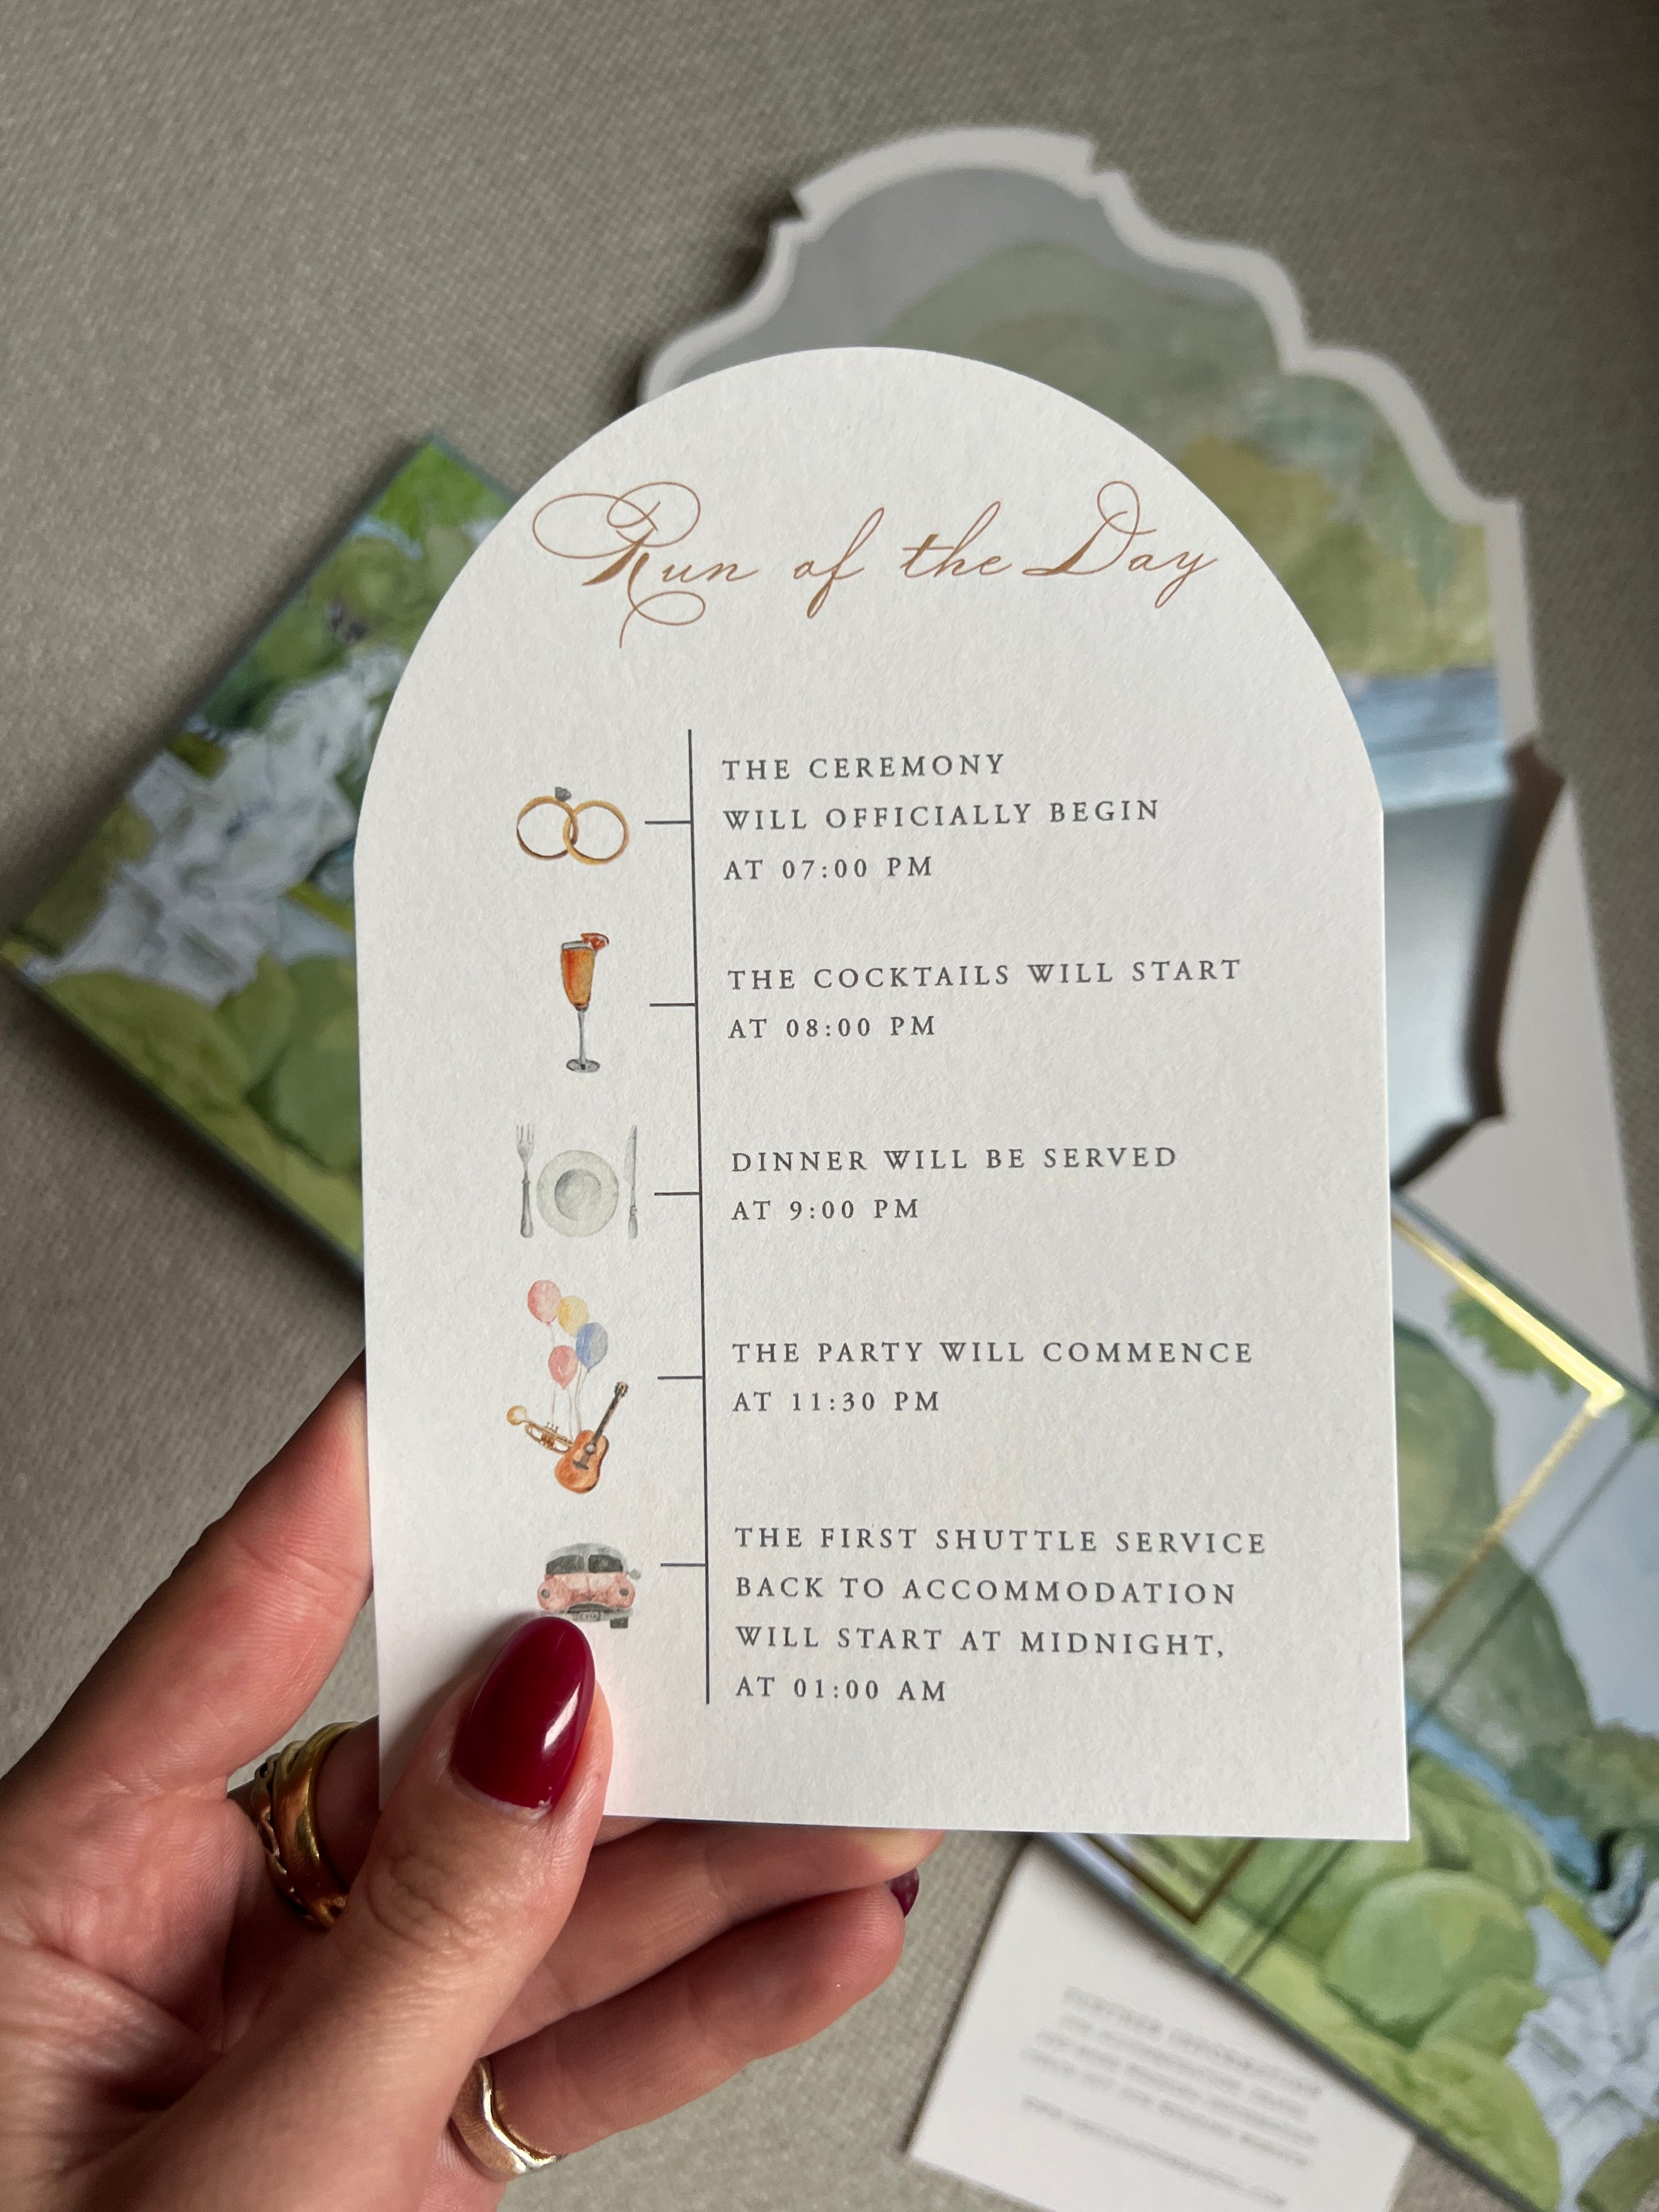 Run of the Day
THE CEREMONY
WILL OFFICIALLY BEGIN
AT 07:00 PM
THE COCKTAILS WILL START
AT 08:00 PM
DINNER WILL BE SERVED
AT 9:00 PM
THE PARTY WILL COMMENCE
AT 11:30 PM
THE FIRST SHUTTLE SERVICE
BACK TO ACCOMMODATION
WILL START AT MIDNIGHT,
AT 01:00 AM